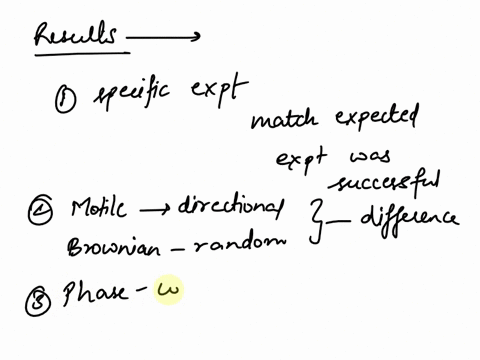 Results →
① specific expt
match expected
expt was
successful
② Motile → directional } — difference
Brownian - random
③ Phase -